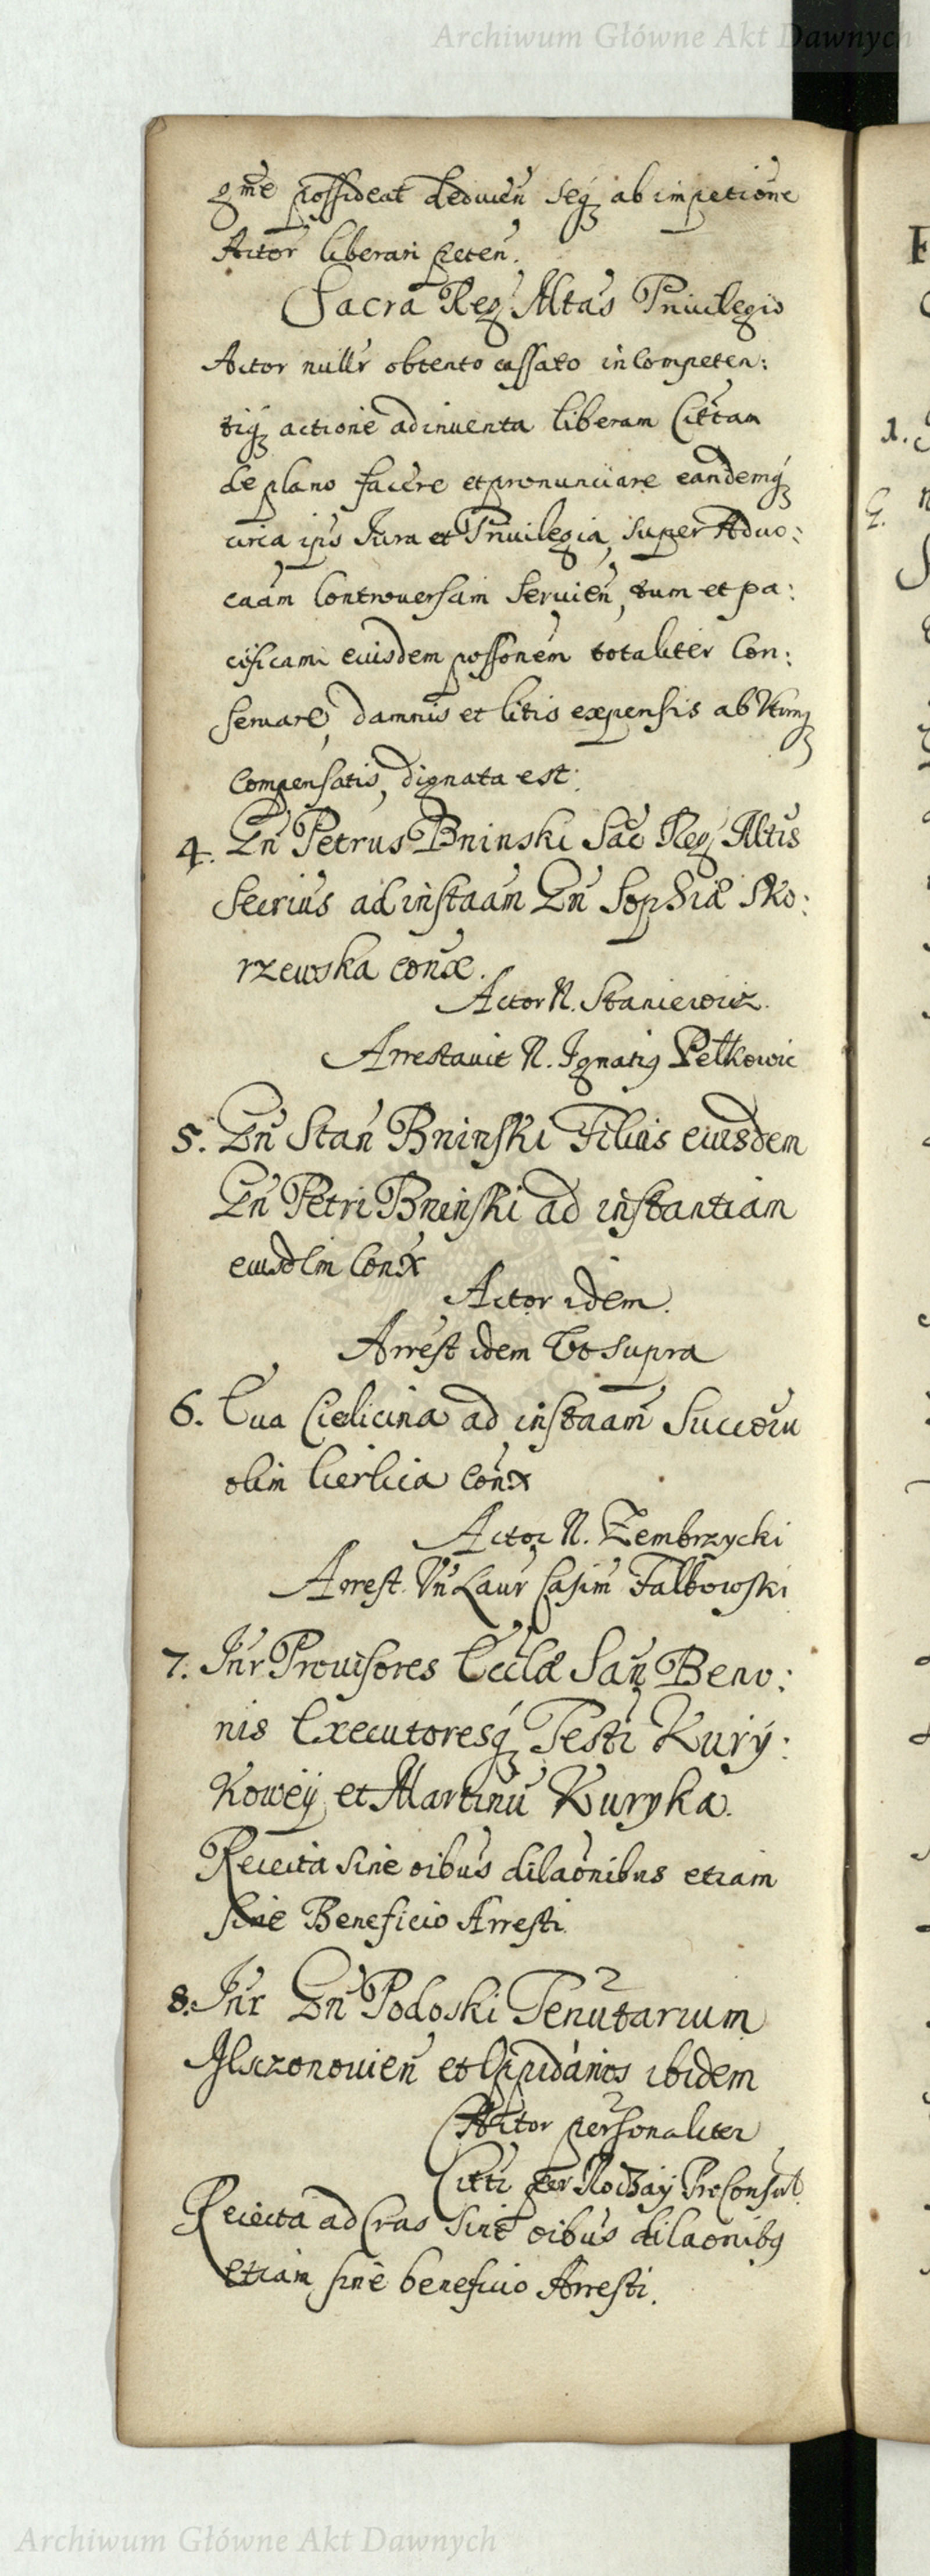 Archiwum Główne Akt Dawnych
gme possideat deducen seq ab impetione
Actor liberari peten.
Sacra Reg. Mtas Privilegio
Actor nullr obtento cassato incompeten:
tiq actione adinventa liberam Cittam
de plano facere et pronunciare eandemq
circa ips Jura et Privilegia, super Advo:
caam Controversam Servien, tum et pa:
cificam eiusdem possonem totaliter Con:
servare, damnis et litis expensis ab utrinq
Compensatis, dignata est.
4. Gn Petrus Bninski Sac Reg Mtis
Secrius ad instaam Gn Sophiæ Sko:
rzewska conx.
Actor N. Staniewicz.
Arrestavit N. Ignatiq Petkowic
5. Gn Stan Bninski Filius eiusdem
Gn Petri Bninski ad instantiam
eiusdem Conx
Actor idem.
Arrest idem Ut supra
6. Eva Cielicina ad instaam Succoru
olim Cierlicia Conx
Actor N. Zembrzycki
Arrest. Vn Laur Casim Falbowski
7. Inr Provisores Ecclæ San Beno:
nis Executoresq Testi Kurÿ:
Koweÿ et Martinu Kuryka.
Reiecta sine oibus dilaonibus etiam
sine Beneficio Arresti.
8. Inr Gn Podoski Tenutarium
et Oppidanos ibidem
Actor personaliter
Citti per Proconsul
Reiecta ad Cras sine oibus dilaonibq
etiam sine beneficio Arresti.
1.
Archiwum Główne Akt Dawnych